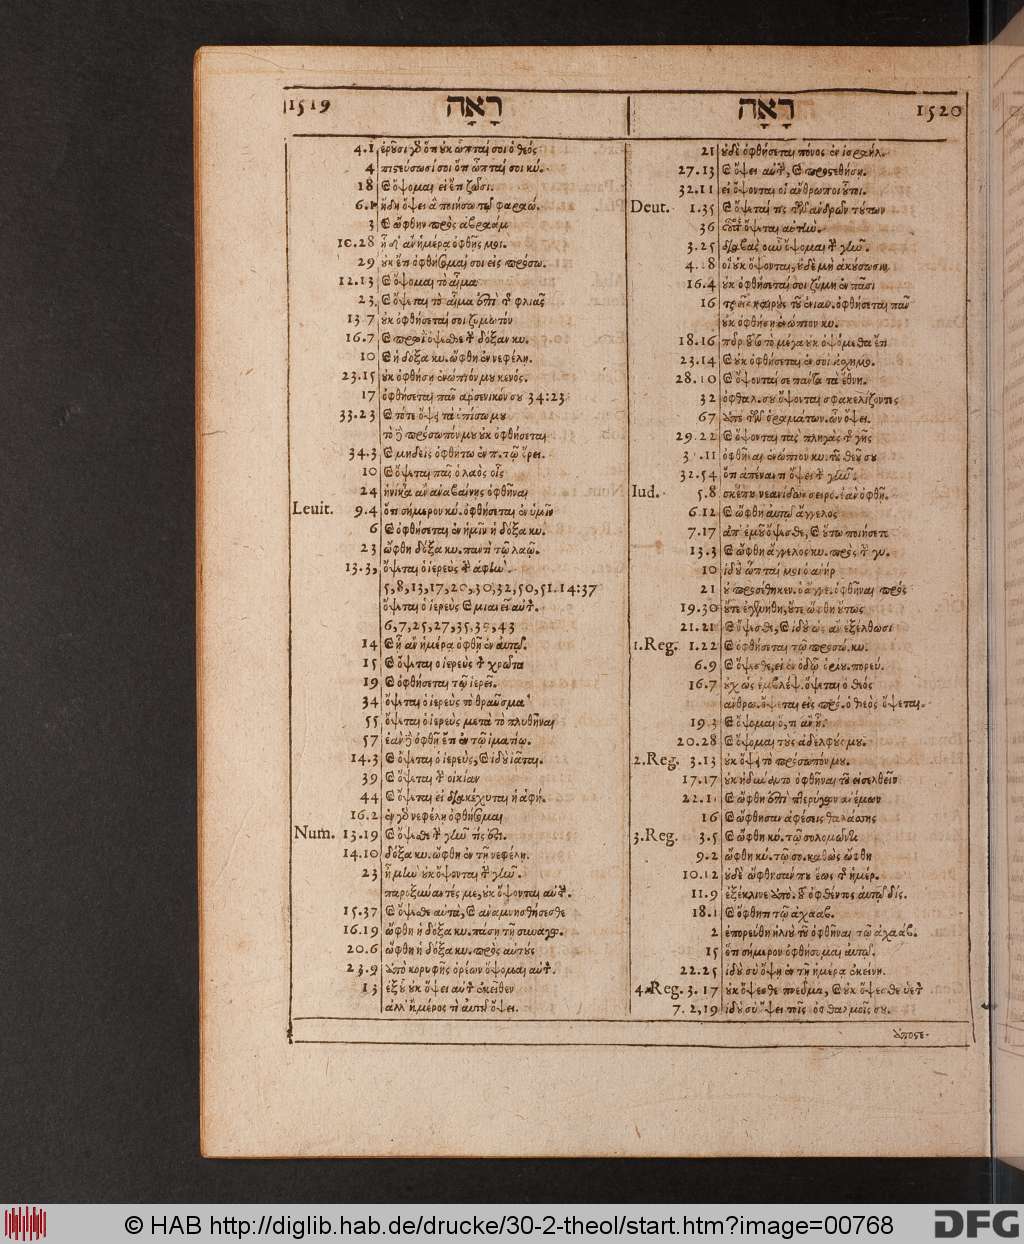 1519 רָאָה
4.1 ἐροῦσι γὸ ὅπ οὐκ ὦπταί σοι ὁ θεός
4 πιστεύσωσί σοι ὅπ ὦπταί σοι κύ.
18 καὶ ὄψομαι εἰ ἔπ ζῶσι.
6.1 ἤδη ὄψει ἃ ποιήσω τῷ φαραώ.
3 καὶ ὤφθην πρὸς ἀβραάμ
10.28 ᾗ δ' ἂν ἡμέρᾳ ὀφθῇς μοι.
29 οὐκ ἔπ ὀφθήσομαί σοι εἰς πρόσω.
12.13 καὶ ὄψομαι τὸ αἷμα
23 καὶ ὄψεται τὸ αἷμα ἐπὶ τῆς φλιᾶς
13 7 οὐκ ὀφθήσεταί σοι ζυμωτόν
16.7 καὶ πρωῒ ὄψεσθε τὴν δόξαν κυ.
10 καὶ ἡ δόξα κυ. ὤφθη ἐν νεφέλῃ.
23.15 οὐκ ὀφθήσῃ ἐνώπιόν μου κενός.
17 ὀφθήσεται πᾶν ἀρσενικόν σου 34:23
33.23 καὶ τότε ὄψῃ τὰ ὀπίσω μου
τὸ δὲ πρόσωπόν μου οὐκ ὀφθήσεται
34.3 καὶ μηδεὶς ὀφθήτω ἐν π. τῷ ὄρει.
10 καὶ ὄψεται πᾶς ὁ λαὸς οἷς
24 ἡνίκα ἂν ἀναβαίνῃς ὀφθῆναι
Leuit. 9.4 ὅπ σήμερον κύ. ὀφθήσεται ἐν ὑμῖν
6 καὶ ὀφθήσεται ἐν ἡμῖν ἡ δόξα κυ.
23 ὤφθη δόξα κυ. παντὶ τῷ λαῷ.
13.3, ὄψεται ὁ ἱερεὺς τὴν ἁφὴν.
5,8,13,17,20,30,32,50,51.14:37
ὄψεται ὁ ἱερεὺς καὶ μιανεῖ αὐτ.
6,7,25,27,35,39,43
14 καὶ ᾗ ἂν ἡμέρᾳ ὀφθῇ ἐν αὐτῷ.
15 καὶ ὄψεται ὁ ἱερεὺς τὸν χρῶτα
19 καὶ ὀφθήσεται τῷ ἱερεῖ.
34 ὄψεται ὁ ἱερεὺς τὸ θραῦσμα
55 ὄψεται ὁ ἱερεὺς μετὰ τὸ πλυθῆναι
57 ἐὰν δὲ ὀφθῇ ἔπ ἐν τῷ ἱματίῳ.
14.3 καὶ ὄψεται ὁ ἱερεὺς, καὶ ἰδοὺ ἰᾶται.
39 καὶ ὄψεται τὴν οἰκίαν
44 καὶ ὄψεται εἰ διακέχυται ἡ ἁφή.
16.2 ἐν γὸ νεφέλῃ ὀφθήσομαι
Num. 13.19 καὶ ὄψεσθε τὴν γῆν τίς ἐστι.
14.10 δόξα κυ. ὤφθη ἐν τῇ νεφέλῃ.
23 ἦ μὴν οὐκ ὄψονται τὴν γῆν.
παροξύναντές με, οὐκ ὄψονται αὐτ.
15.37 καὶ ὄψεσθε αὐτὰ, καὶ ἀναμνησθήσεσθε
16.19 ὤφθη ἡ δόξα κυ. πάσῃ τῇ συναγω.
20.6 ὤφθη ἡ δόξα κυ. πρὸς αὐτούς
23.9 ἀπὸ κορυφῆς ὀρέων ὄψομαι αὐτ.
13 ἐξ οὗ οὐκ ὄψει αὐτ ἐκεῖθεν
ἀλλ' ἢ μέρος τὶ αὐτοῦ ὄψει.
רָאָה 1520
21 οὐδὲ ὀφθήσεται πόνος ἐν ἰσραήλ.
27.13 καὶ ὄψει αὐτ, καὶ προστεθήσῃ.
32.11 εἰ ὄψονται οἱ ἄνθρωποι οὗτοι.
Deut. 1.35 καὶ ὄψεταί τις τῶν ἀνδρῶν τούτων
36 οὗτος ὄψεται αὐτήν.
3.25 διαβὰς οὖν ὄψομαι τὴν γῆν.
4.28 οἳ οὐκ ὄψονται, οὐδὲ μὴ ἀκούσωσιν
16.4 οὐκ ὀφθήσεταί σοι ζύμη ἐν πᾶσι
16 τρεῖς καιροὺς τοῦ ἐνιαυ. ὀφθήσεται πᾶν
οὐκ ὀφθήσῃ ἐνώπιον κυ.
18.16 πῦρ τοῦτο μέγα οὐκ ὀψόμεθα ἔπ
23.14 καὶ οὐκ ὀφθήσεται ἐν σοι ἀσχημο.
28.10 καὶ ὄψονταί σε πάντα τὰ ἔθνη.
32 ὀφθαλ. σου ὄψονται σφακελίζοντες
67 ἀπὸ τῶν ὁραμάτων. ὧν ὄψει.
29.22 καὶ ὄψονται τὰς πληγὰς τῆς γῆς
ὀφθῆναι ἐνώπιον κυ. τοῦ θεοῦ σου
32.54 ὅπ ἀπέναντι ὄψει τὴν γῆν.
Iud. 5.8 σκέπη νεανίδων σειρο. ἐὰν ὀφθῇ.
6 12 καὶ ὤφθη αὐτῷ ἄγγελος
7.17 ἀπ' ἐμοῦ ὄψεσθε, καὶ οὕτω ποιήσετε
13.3 καὶ ὤφθη ἄγγελος κυ. πρὸς τὴν γυ.
10 ἰδοὺ ὦπταί μοι ὁ ἀνήρ
21 οὐ προσέθηκεν. ὁ ἄγγε. ὀφθῆναι πρός
19.30 οὔτε ἐγενήθη, οὔτε ὤφθη οὕτως
21.21 καὶ ὄψεσθε, καὶ ἰδοὺ ὡς ἂν ἐξέλθωσι
1.Reg. 1.22 καὶ ὀφθήσεται τῷ προσώ. κυ.
6.9 καὶ ὄψεσθε, εἰ ἐν ὁδῷ ὁρίου. πορεύ.
16.7 οὐχ ὡς ἐμβλέψ. ὄψεται ὁ θεός
ἄνθρω. ὄψεται εἰς πρό. ὁ θεὸς ὄψεται.
19.3 καὶ ὄψομαι ὅ, τι ἂν ᾖ.
20.28 καὶ ὄψομαι τοὺς ἀδελφούς μου.
2.Reg. 3.13 οὐκ ὄψῃ τὸ πρόσωπόν μου.
17.17 οὐκ ἠδύναντο ὀφθῆναι τοῦ εἰσελθεῖν
22.1 καὶ ὤφθη ἐπὶ πτερύγων ἀνέμων
16 καὶ ὤφθησαν ἀφέσεις θαλάσσης
3.Reg. 3.5 καὶ ὤφθη κύ. τῷ σολομῶντι
9.2 ὤφθη κύ. τῷ σο. καθὼς ὤφθη
10.12 οὐδὲ ὤφθησάν που ἕως τῆς ἡμέρ.
11.9 ἐξέκλινε ἀπὸ. τοῦ ὀφθέντος αὐτῷ δίς.
18.1 καὶ ὄφθητι τῷ ἀχαάβ.
2 ἐπορεύθη ἠλιοὺ τοῦ ὀφθῆναι τῷ ἀχαάβ.
15 ὅπ σήμερον ὀφθήσομαι αὐτῷ.
22.25 ἰδοὺ σὺ ὄψῃ ἐν τῇ ἡμέρᾳ ἐκείνῃ.
4.Reg. 3.17 οὐκ ὄψεσθε πνεῦμα, καὶ οὐκ ὄψεσθε ὑετ
7.2,19 ἰδοὺ σὺ ὄψει τοῖς ὀφθαλμοῖς σου.
ἀποστε-
© HAB http://diglib.hab.de/drucke/30-2-theol/start.htm?image=00768 DFG